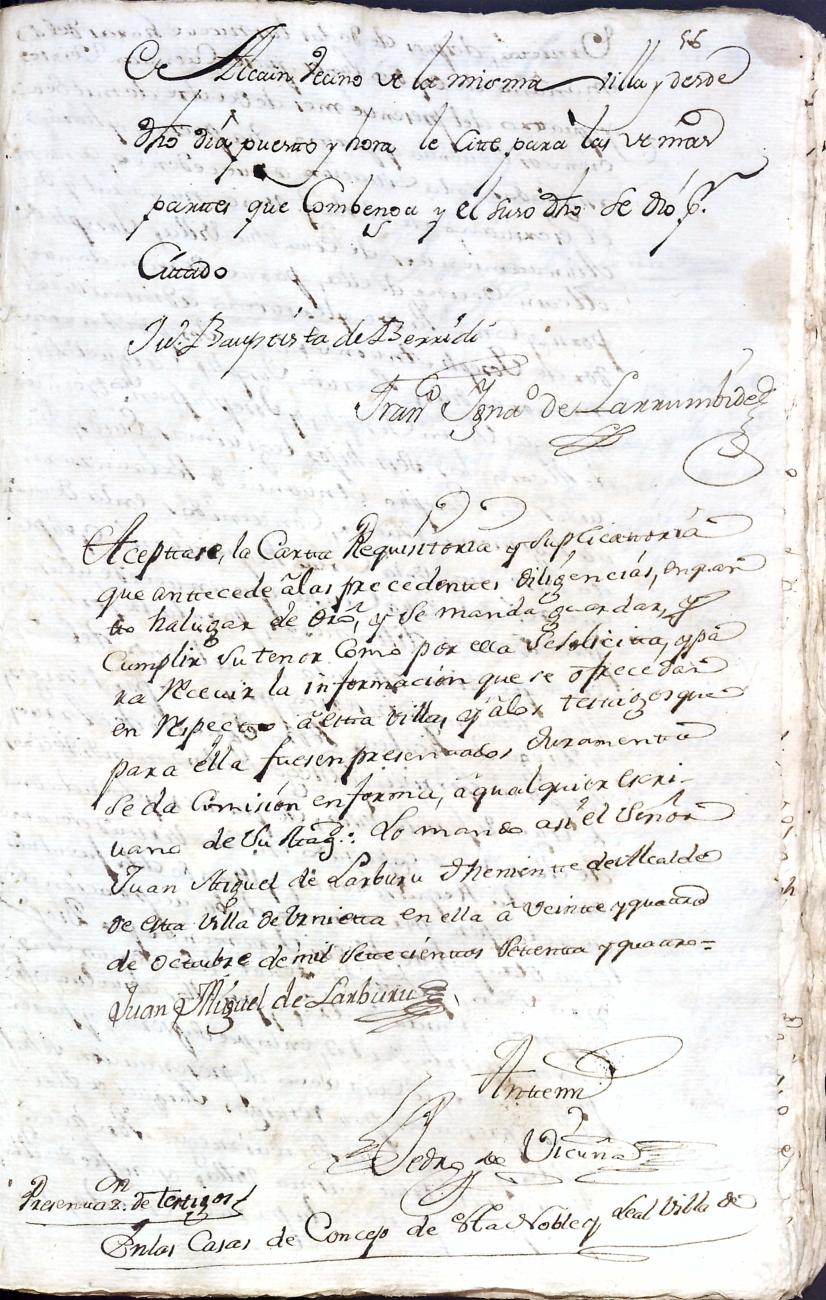 56
de Alcain vecino de la misma villa y desde
dho dia puesto y hora le cite para las demas
partes que Combenga y el suso dho se dió pr.
Citado
Jun. Bauptista de Berridi
Franco Ignao de Larrumbide
Aceptase, la Carta Requisitoria y suplicattoria
que anttecede â las precedenttes diligencias, en quan
tto ha lugar de dro, y se manda guardar, y
Cumplir su tenor Como por ella se solicitta, y pa
ra receuir la informacion que se ofreceda
en respecto â esta villa, y â los testigos que
para ella fuesen presentados Juramentto
se da Comision en forma, â qualquier escri-
uano de su Magd: Lo mando asi el Señor
Juan Miguel de Larburu Theniente de Alcalde
de esta Villa de Urnietta en ella â veinte y quattro
de octubre de mil settecienttos settentta y quattro=
Juan Miguel de Larburu
Antemi
Pedro de Vicuña
Presentazon. de testigos
En las Casas de Concejo de esta Noble y Leal Villa de